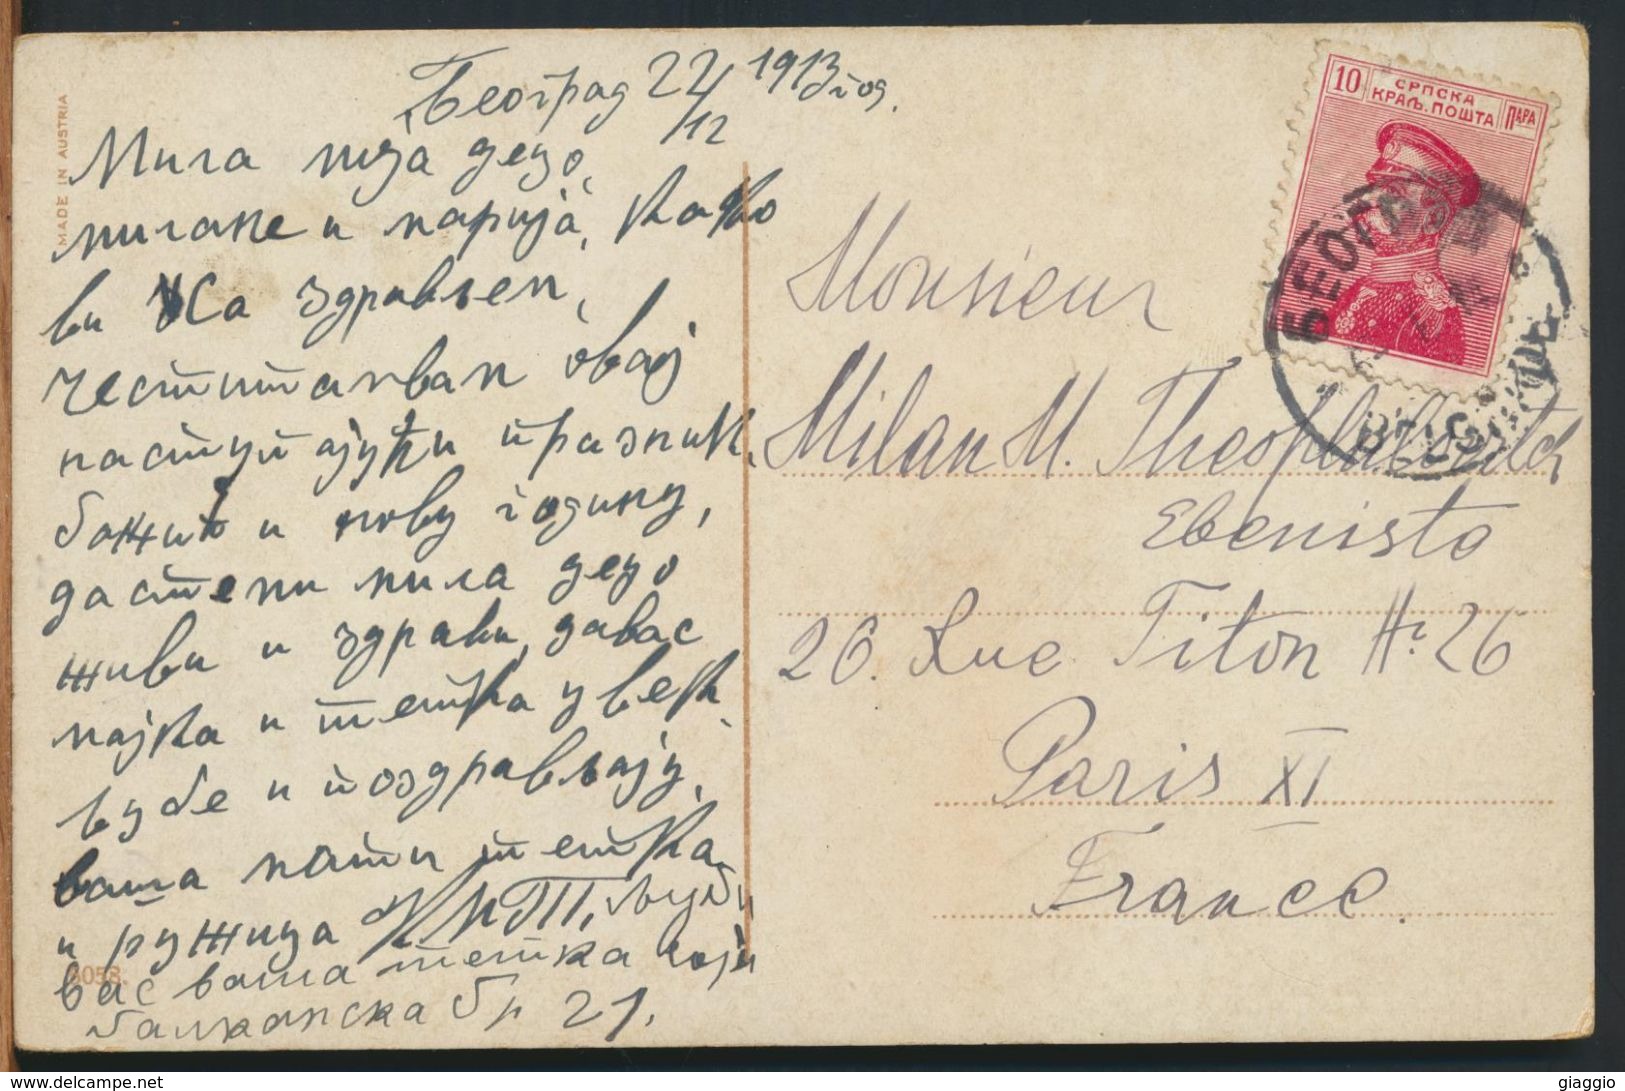 Београд 22/12 1913 год.
Мила моја децо,
милане и марија, како
ви са здрављем,
честитамвам овај
настуајући празник,
божић и нову годину,
дастени мила децо
живи и здрави, давас
мајка и тетка увек
љубе и поздрављају,
ваша мати тетка
и ружица К М Т, љуби
вас ваша тетка соја
балканска бр 21.
MADE IN AUSTRIA
6058.
10 СРПСКА ПАРА
КРАЉ. ПОШТА
БЕОГРАД
BELGRADE
Monsieur
Milan M. Theophilovitch
Ebenista
26. Rue Titon No 26
Paris XI
France.
delcampe.net
giaggio